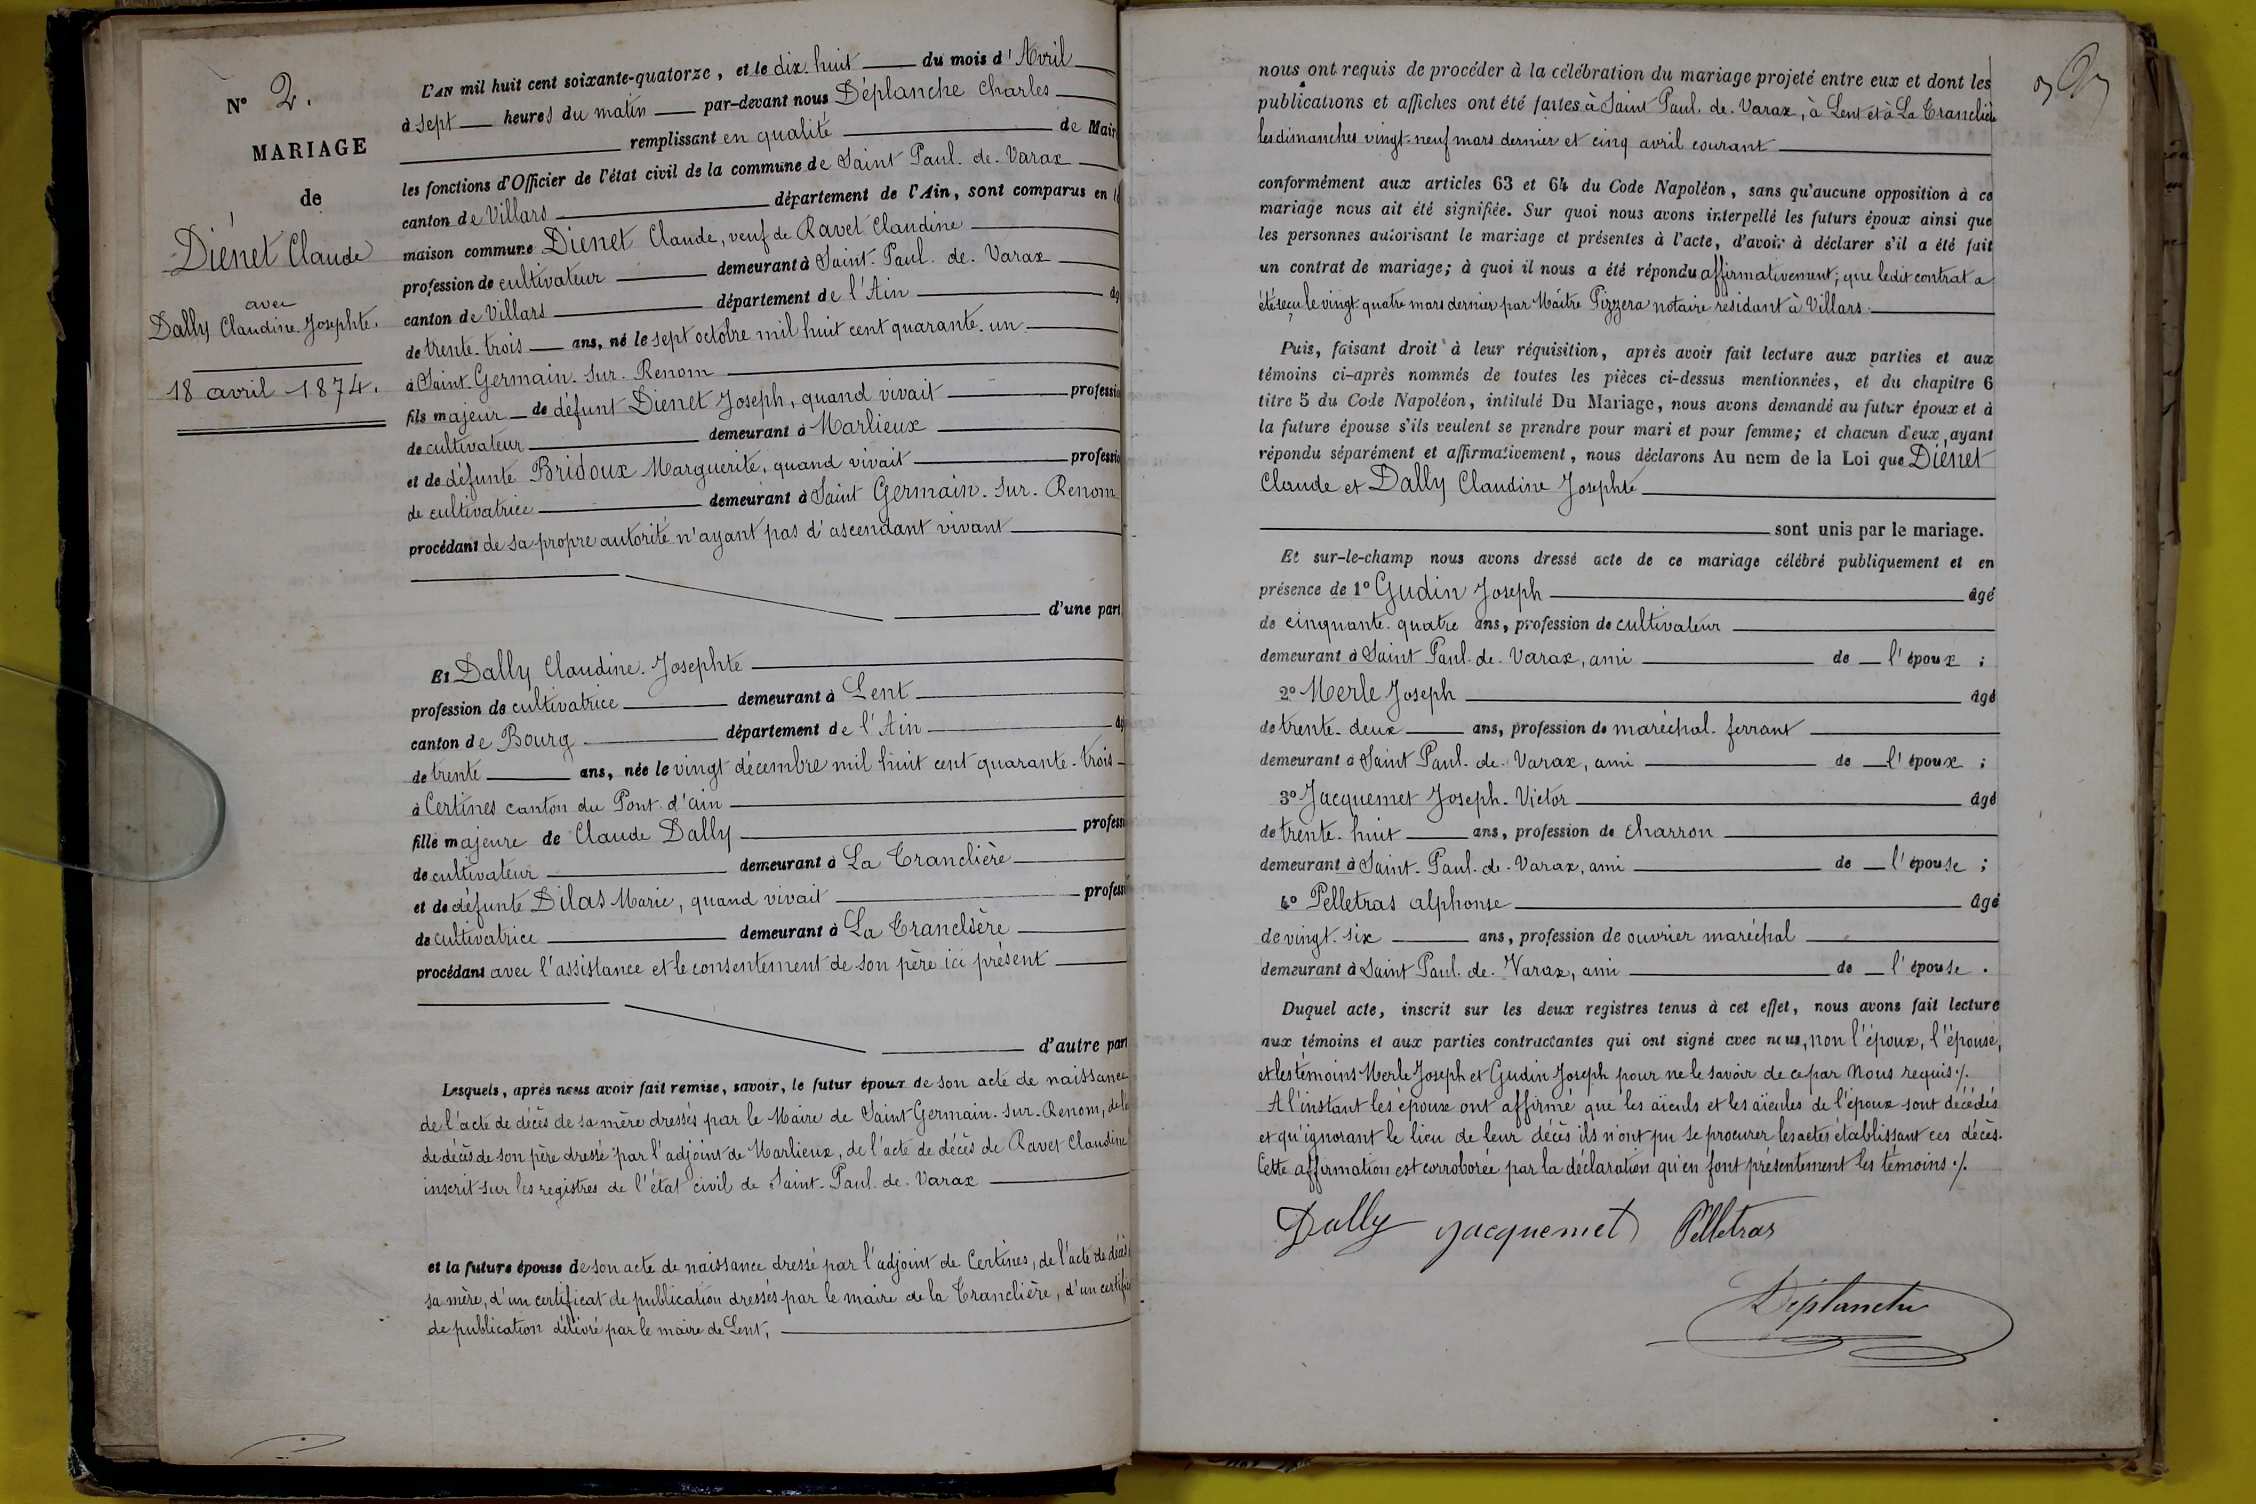 N° 2.
MARIAGE
de
Diénet Claude
avec
Dally Claudine Josephte.
18 avril 1874.
L'AN mil huit cent soixante-quatorze, et le dix-huit du mois d'Avril
à sept heures du matin par-devant nous Déplanche Charles
remplissant en qualité de Mair
les fonctions d'Officier de l'état civil de la commune de Saint Paul. de. Varax
canton de Villars département de l'Ain, sont comparus en l
maison commune Diénet Claude, veuf de Ravet Claudine
profession de cultivateur demeurant à Saint-Paul. de. Varax
canton de Villars département de l'Ain âg
de trente-trois ans, né le sept octobre mil huit cent quarante-un
à Saint-Germain-sur-Renom
fils majeur de défunt Diénet Joseph, quand vivait professio
de cultivateur demeurant à Marlieux
et de défunte Bridoux Marguerite, quand vivait professio
de cultivatrice demeurant à Saint Germain-sur-Renom
procédant de sa propre autorité n'ayant pas d'ascendant vivant
d'une part
Et Dally Claudine-Josephte
profession de cultivatrice demeurant à Lent
canton de Bourg département de l'Ain âg
de trente ans, née le vingt décembre mil huit cent quarante-trois
à Certines canton du Pont d'ain
fille majeure de Claude Dally professi
de cultivateur demeurant à La Tranclière
et de défunte Dilas Marie, quand vivait professi
de cultivatrice demeurant à La Tranclière
procédant avec l'assistance et le consentement de son père ici présent
d'autre part
Lesquels, après nous avoir fait remise, savoir, le futur époux de son acte de naissance
de l'acte de décès de sa mère dressés par le Maire de Saint Germain-sur-Renom, de l'a
de décès de son père dressé par l'adjoint de Marlieux, de l'acte de décès de Ravet Claudine
inscrit sur les registres de l'état civil de Saint-Paul. de. Varax
et la future épouse de son acte de naissance dressé par l'adjoint de Certines, de l'acte de décès
sa mère, d'un certificat de publication dressés par le maire de la Tranclière, d'un certific
de publication délivré par le maire de Lent,
nous ont requis de procéder à la célébration du mariage projeté entre eux et dont les
publications et affiches ont été faites à Saint Paul. de. Varax, à Lent et à La Tranclière
les dimanches vingt-neuf mars dernier et cinq avril courant
conformément aux articles 63 et 64 du Code Napoléon, sans qu'aucune opposition à ce
mariage nous ait été signifiée. Sur quoi nous avons interpellé les futurs époux ainsi que
les personnes autorisant le mariage et présentes à l'acte, d'avoir à déclarer s'il a été fait
un contrat de mariage; à quoi il nous a été répondu affirmativement; que ledit contrat a
été reçu le vingt quatre mars dernier par Maître Pizzera notaire résidant à Villars.
Puis, faisant droit à leur réquisition, après avoir fait lecture aux parties et aux
témoins ci-après nommés de toutes les pièces ci-dessus mentionnées, et du chapitre 6
titre 5 du Code Napoléon, intitulé Du Mariage, nous avons demandé au futur époux et à
la future épouse s'ils veulent se prendre pour mari et pour femme; et chacun d'eux, ayant
répondu séparément et affirmativement, nous déclarons Au nom de la Loi que Diénet
Claude et Dally Claudine Josephte
sont unis par le mariage.
Et sur-le-champ nous avons dressé acte de ce mariage célébré publiquement et en
présence de 1° Gudin Joseph âgé
de cinquante-quatre ans, profession de cultivateur
demeurant à Saint Paul. de. Varax, ami de l'époux ;
2° Merle Joseph âgé
de trente-deux ans, profession de maréchal-ferrant
demeurant à Saint Paul. de. Varax, ami de l'époux ;
3° Jacquemet Joseph-Victor âgé
de trente-huit ans, profession de charron
demeurant à Saint-Paul. de. Varax, ami de l'épouse ;
4° Pelletras alphonse âgé
de vingt-six ans, profession de ouvrier maréchal
demeurant à Saint Paul. de. Varax, ami de l'épouse.
Duquel acte, inscrit sur les deux registres tenus à cet effet, nous avons fait lecture
aux témoins et aux parties contractantes qui ont signé avec nous, non l'époux, l'épouse,
et les témoins Merle Joseph et Gudin Joseph pour ne le savoir de ce par Nous requis ./.
A l'instant les époux ont affirmé que les aïeuls et les aïeules de l'époux sont décédés
et qu'ignorant le lieu de leur décès ils n'ont pu se procurer les actes établissant ces décès.
Cette affirmation est corroborée par la déclaration qu'en font présentement les témoins ./.
Dally Jacquemet Pelletras
Déplanche